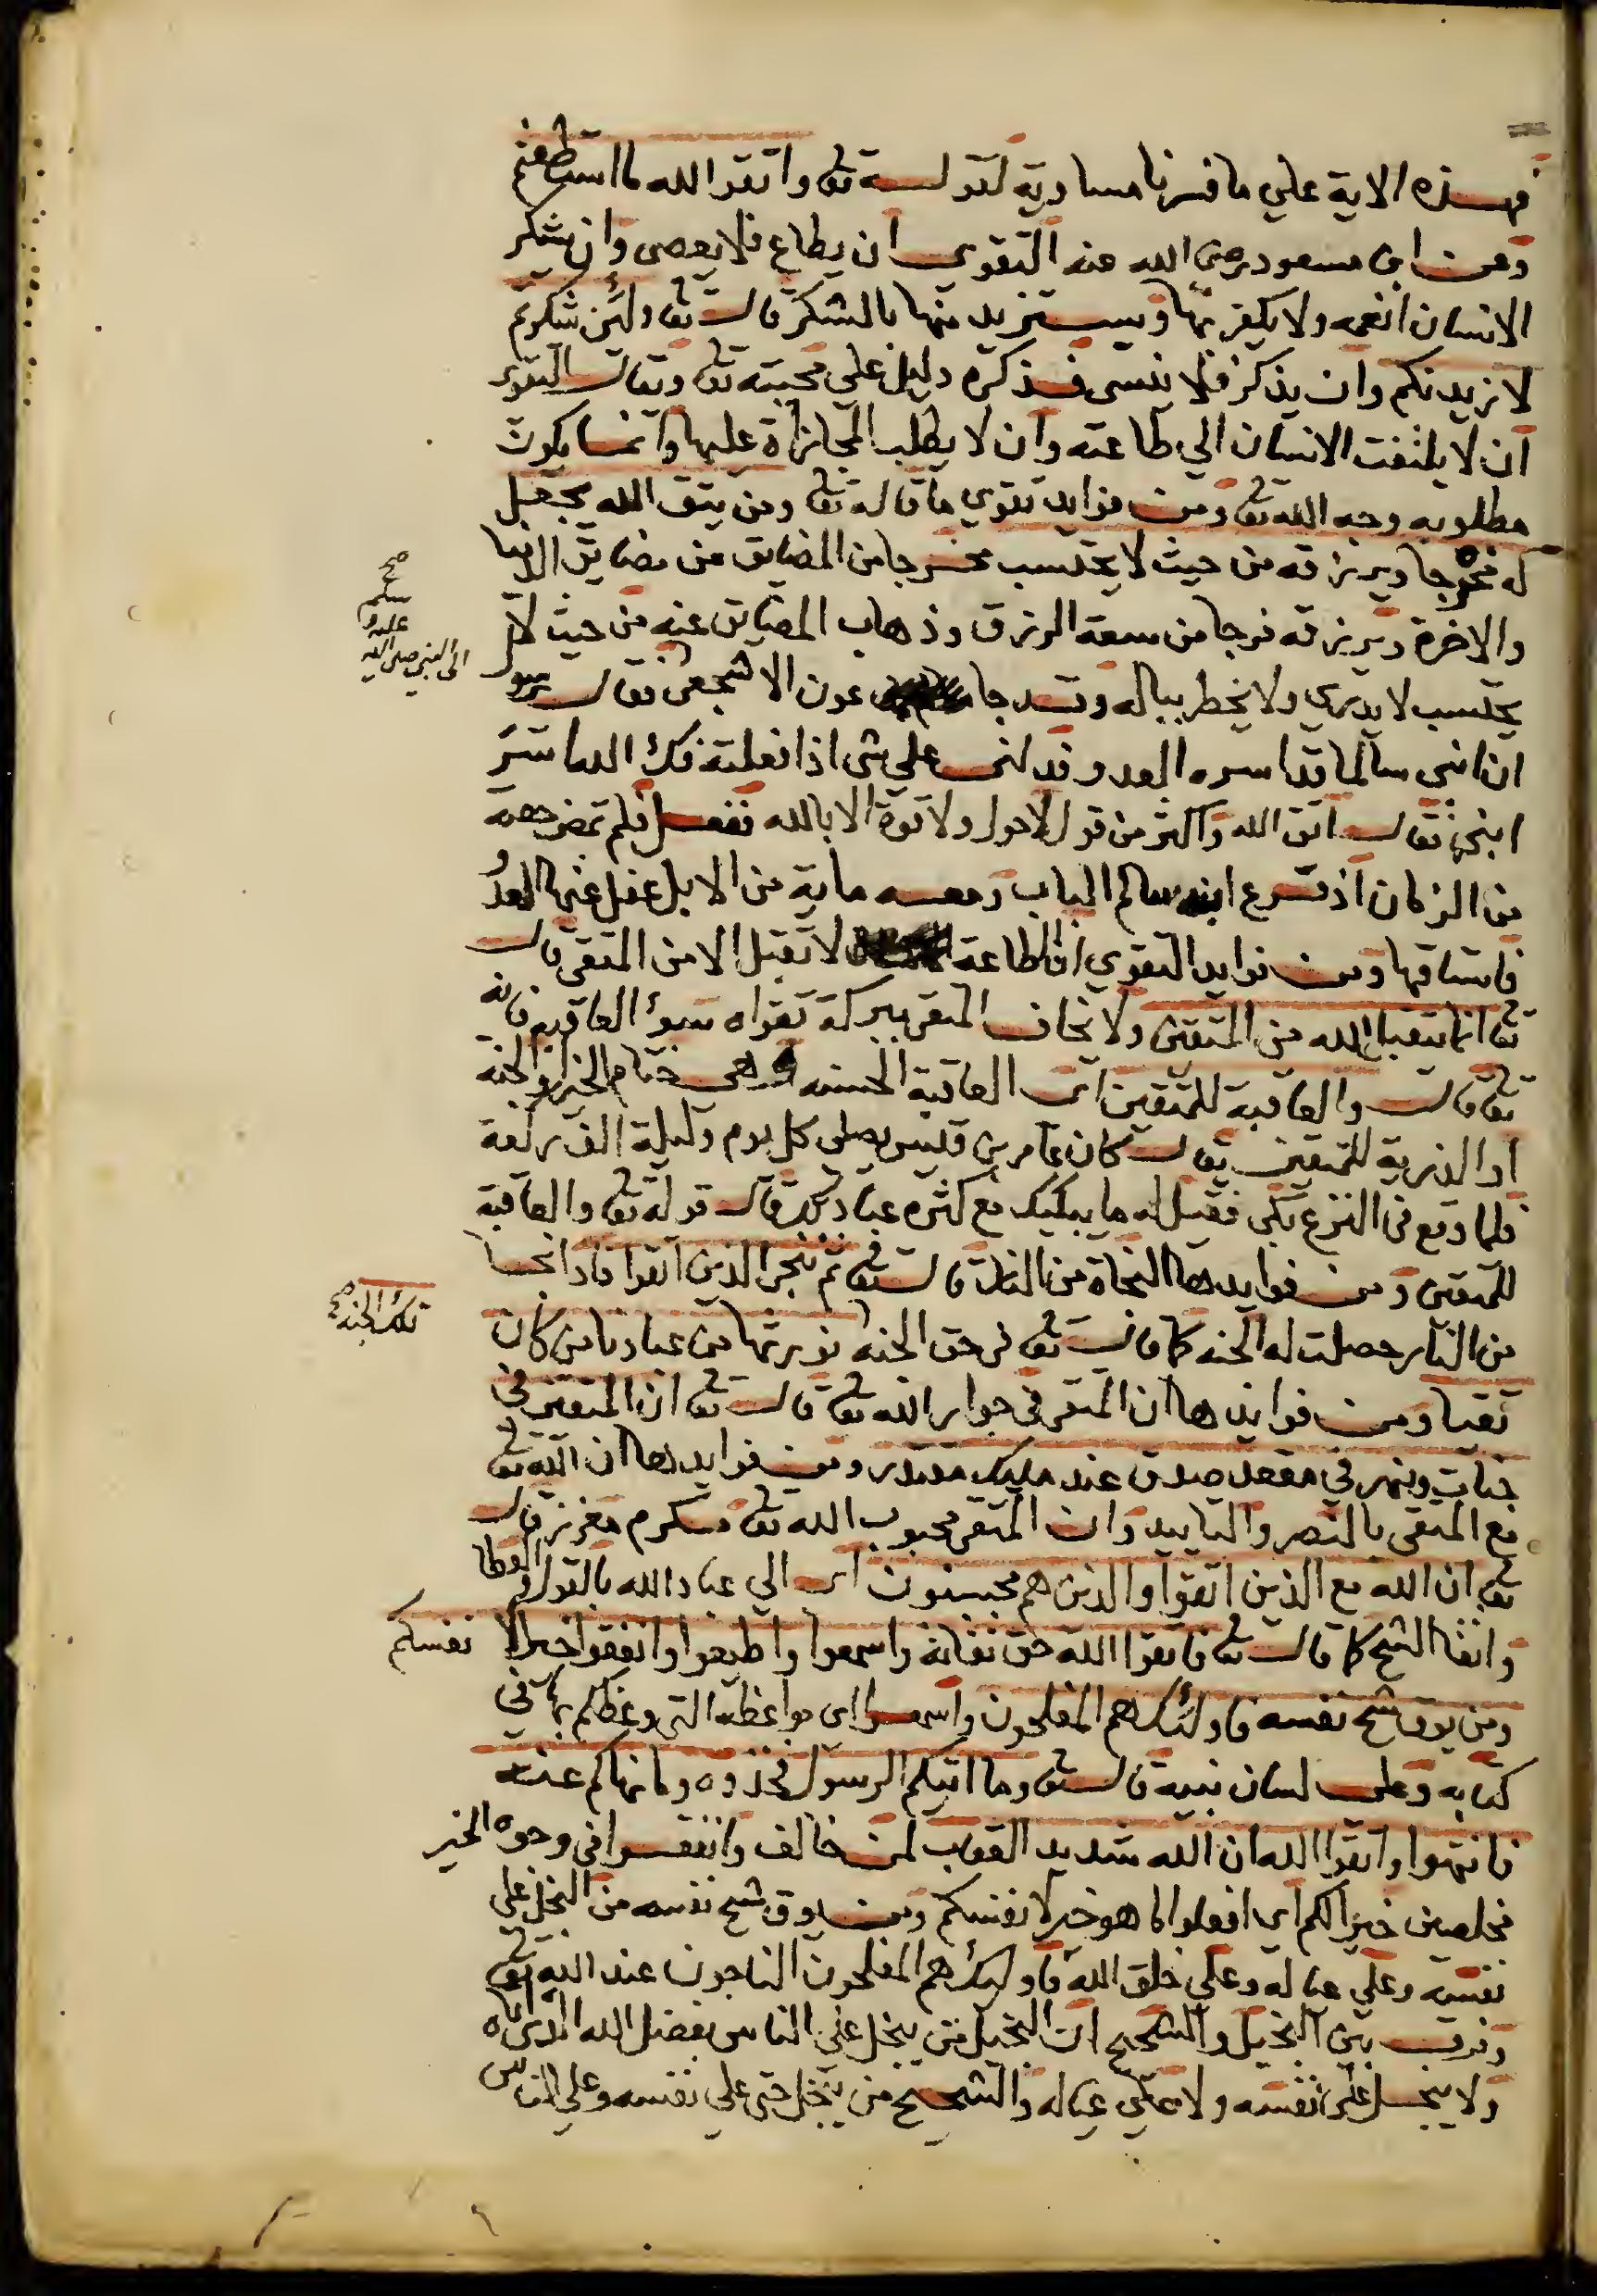 فهذه الاية علي ما فسرنا مساوية لقوله تع واتقوا الله ما استطعتم
وعن ابن مسعود رضى الله عنه التقوي ان يطاع فلا يعصى وان يشكر
الانسان انعمه ولا يكفر بها ويستزيد منها بالشكر قال تع ولئن شكرتم
لازيدنكم وان يذكر فلا ينسى فذكره دليل علي محبته تع ويقال التقوى
ان لا يلتفت الانسان الي طاعته وان لا يطلب المجازاة عليها وانما يكون
مطلوبه وجه الله تع ومن فوايد تقوي ما قاله تع ومن يتق الله يجعل
له مخرجا ويرزقه من حيث لا يحتسب مخرجا من المضايق من مضايق الدنيا
والاخرة ويرزقه فرجا من سعة الرزق وذهاب المضايق عنه من حيث لا
يحتسب لا يدري ولا يخطر بباله وقد جا عون الاشجعى فقال يرسول
الى النبى صلى الله
عليه و
سلم
صح
ان ابنى سالما قد اسره العدو فدلنى على شى اذا فعلته فك الله اسر
ابنى فقال اتق الله واكثر من قول لاحول ولا قوة الا بالله ففعل فلم تمض حصة
من الزمان اذ قرع ابنه سالم الباب ومعه ماية من الابل غفل عنها العدو
فاستاقها ومن فوايد التقوي ان الطاعة لا تقبل الا من المتقى قال
تع انما يتقبل الله من المتقين ولا يخاف المتقى ببركة تقواه سوء العاقبة فانه
تع قال والعاقبة للمتقين اى العاقبة الحسنه هى ختام الخير والجنة
او الذرية للمتقين يقال كان عامر بن قيس يصلى كل يوم وليلة الف ركعة
فلما وقع في النزع بكى فقيل له ما يبكيك مع كثره عبادتك فقال قوله تع والعاقبة
للمتقين ومن فوايدها النجاة من النار قال تع ثم ننجى الذين اتقوا فاذا نجا
من النار حصلت له الجنه كما قال تع فى حق الجنه نورثها من عبادنا من كان
تلك الجنة صح
تقيا ومن فوايدها ان المتقى في جوار الله تع قال تع ان المتقين فى
جنات ونهر في مقعد صدق عند مليك مقتدر ومن فوايدها ان الله تع
مع المتقى بالنصر والتاييد وان المتقى محبوب الله تع مكرم معزز قال
تع ان الله مع الذين اتقوا والذين هم محسنون اى الي عباد الله بالقول والعطا
واتقا الشح كما قال تع فاتقوا الله حق تقاته واسمعوا واطيعوا وانفقوا خيرا لانفسكم
ومن يوق شح نفسه فاولئك هم المفلحون واسمعوا اى مواعظه التى وعظكم بها في
كتابه وعلى لسان نبيه قال تع وما اتيكم الرسول فخذوه وما نهاكم عنه
فانتهوا واتقوا الله ان الله شديد العقاب لمن خالف وانفقوا في وجوه الخير
مخلصين خيرا لكم اي افعلوا ما هو خير لانفسكم ومن يوق شح نفسه من البخل علي
نفسه وعلي عياله وعلي خلق الله فاولئك هم المفلحون الناجون عند الله تع
وفرق بين البخيل والشحيح ان البخيل من يبخل عن الناس بفضل الله الذى اتاه
ولا يبخل على نفسه ولا علي عياله والشحيح من يبخل حتى علي نفسه وعلي الناس